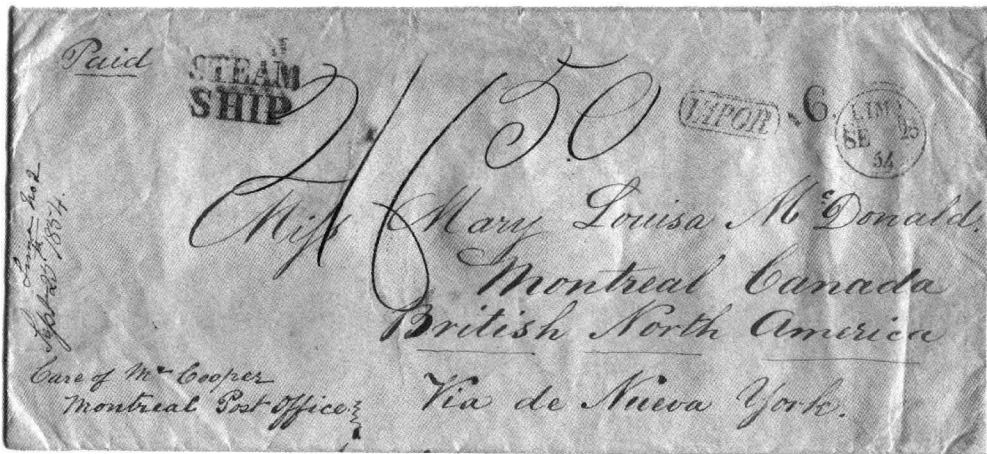 Paid
STEAM
SHIP
2/6
50
VAPOR
6.
LIMA
SE 25
54
Lima No 2
Sept 25th 1854.
Miss Mary Louisa McDonald.
Montreal Canada
British North America
Via de Nueva York.
Care of Mr Cooper
Montreal Post Office